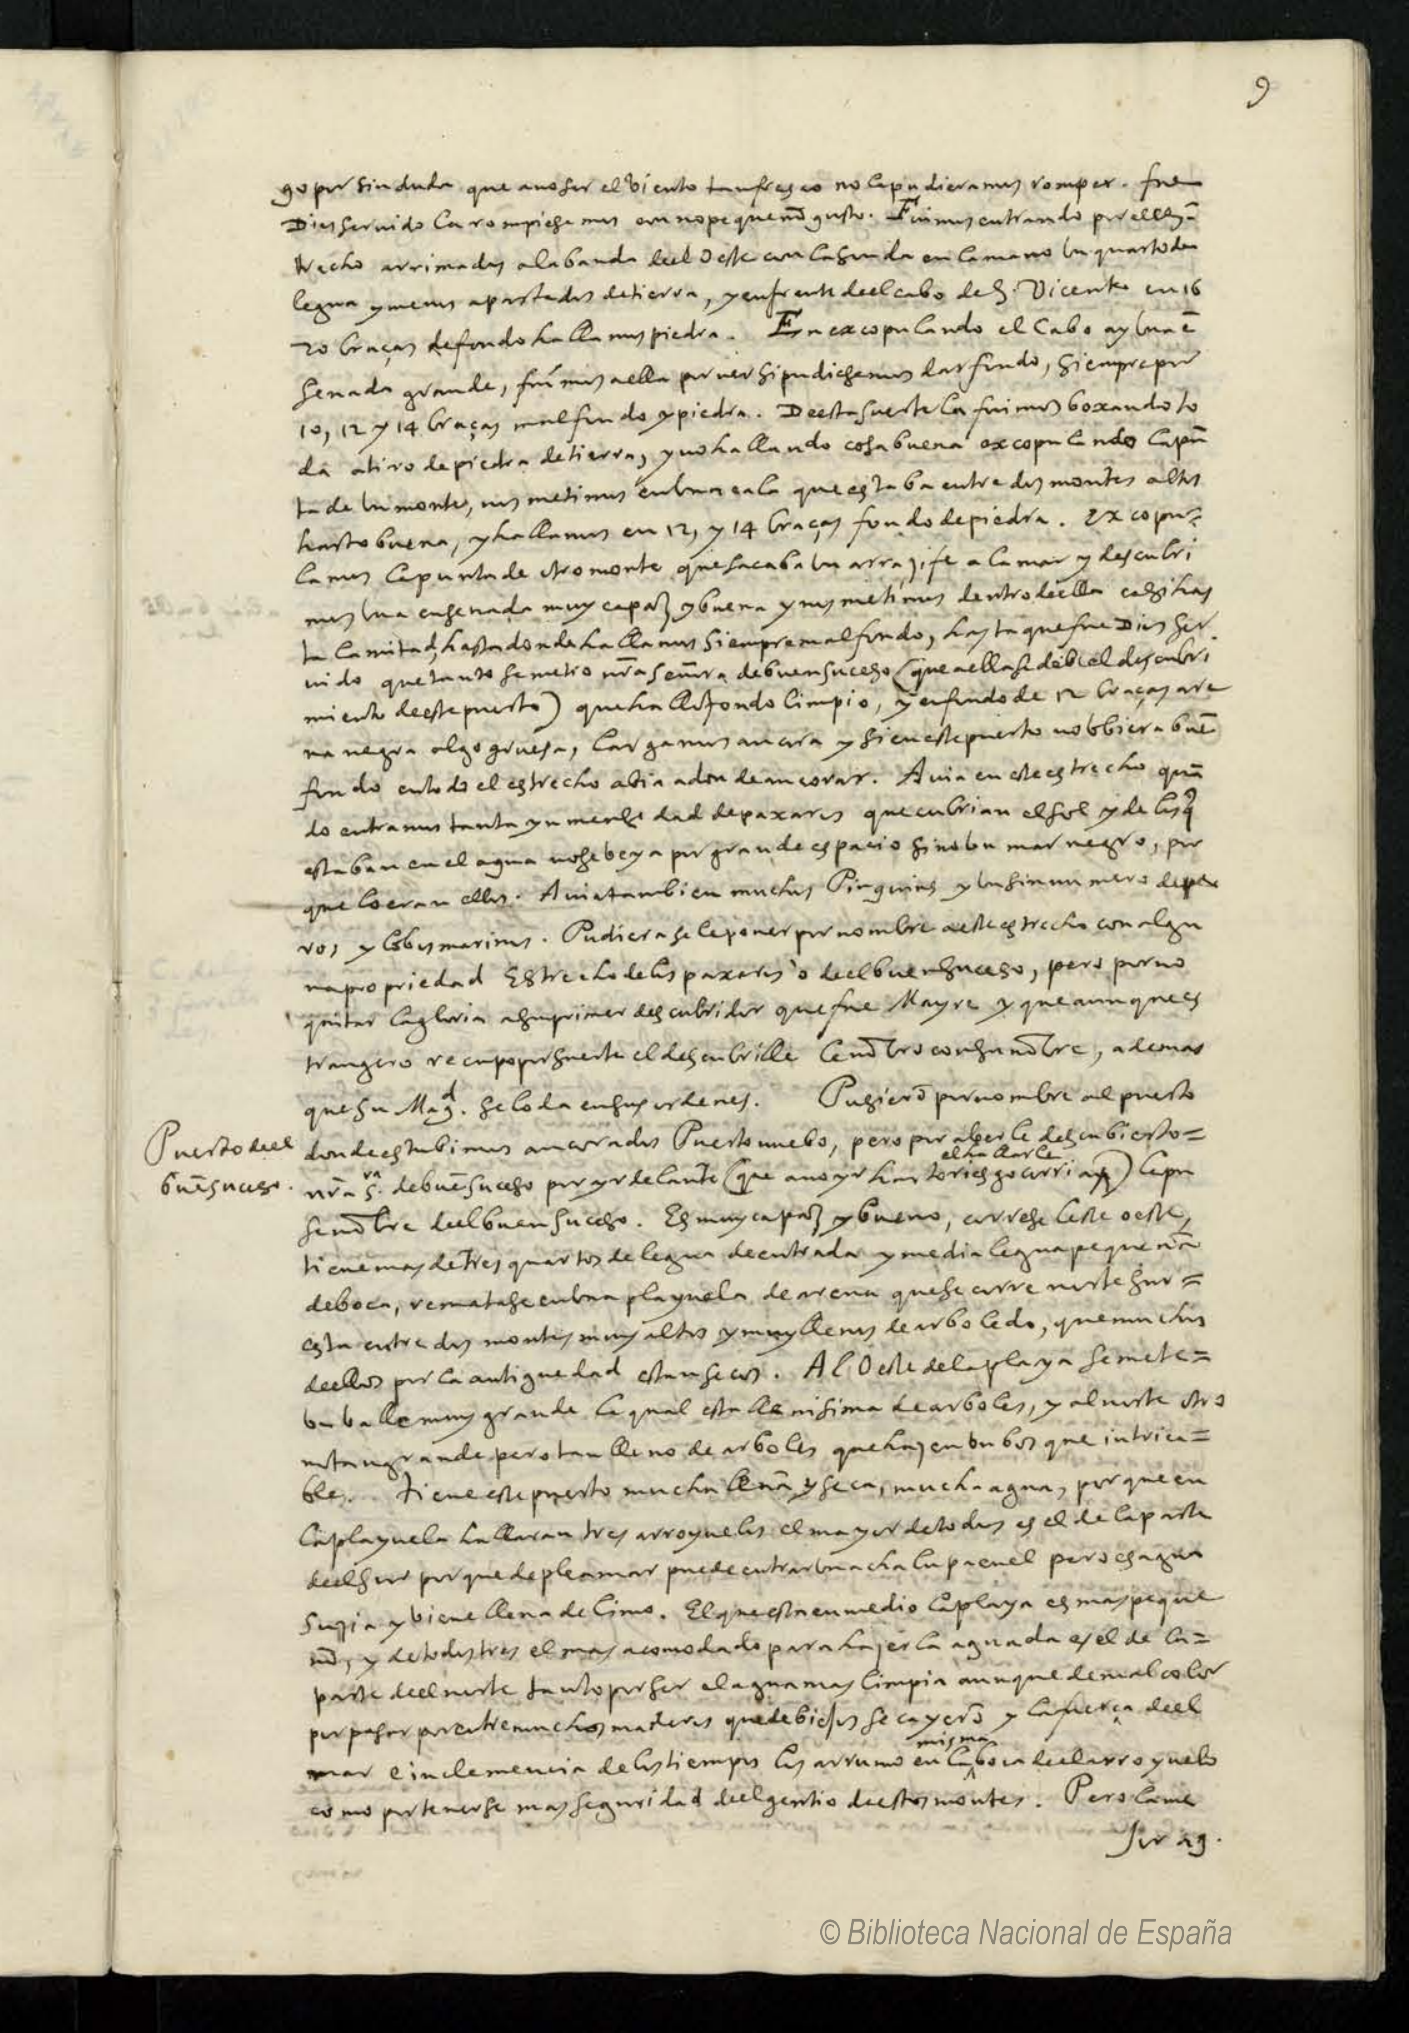 9
go por sin duda que a no ser el viento tan fresco no la pudieramos romper. fue
Dios servido la rompiesemos con no pequeño gusto. Fuimos entrando por el es
trecho arrimados a la banda deel Oeste con la sonda en la mano un quarto de
legua y menos apartados de tierra, y enfrente deel cabo de S. Vicente en 16
20 braças de fondo hallamos piedra. En excopulando el Cabo ay una ē
senada grande, fuimos a ella por ver si pudiesemos dar fondo, siempre por
10, 12 y 14 braças mal fondo y piedra. De esta suerte la fuimos boxando to
da a tiro de piedra de tierra, y no hallando cosa buena excopulando la pū
ta de un monte, nos metimos en una cala que estaba entre dos montes altos
harto buena, y hallamos en 12, y 14 braças fondo de piedra. Excopu-
lamos la punta de otro monte que sacaba un arrazife a la mar y descubri
mos una ensenada muy capaz y buena y nos metimos dentro deella casi has
ta la mitad, hasta donde hallamos siempre mal fondo, hasta que fue Dios ser
uido que tanto se metio nr̄a señora de buen suceso (que a ella se debe el descubri
miento de este puerto) que hallo fondo limpio, y en fondo de 12 braças are
na negra algo gruesa, largamos ancora y si en este puerto no ubiera buē
fondo en todo el estrecho abia adonde ancorar. Auia en este estrecho quā
do entramos tanta ynmensidad de paxaros que cubrian el sol y de los q̄
estaban en el agua no se beya por grande espacio sino un mar negro, por
que lo eran ellos. Auia tambien muchos Pinguins y un sin numero de pe
ros, y lobos marinos. Pudierasele poner por nombre a este estrecho con algu
na propriedad Estrecho de los paxaros o deel buen suceso, pero por no
quitar la gloria a su primer descubridor que fue Mayre y que aunque es
trangero le cupo por suerte el descubrille le nōbro con su nōbre, ademas
que su Magd. se lo da en sus ordenes. Pusierō por nombre al puerto
donde estubimos ancorados Puerto nuebo, pero por aberle descubierto=
Puerto deel
buē suceso.
el hallarle
nr̄a Sra. de buē suceso por yr delante (que a no yr harto riesgo corria) le pu
se nōbre deel buen suceso. Es muy capaz y bueno, correse leste oeste,
tiene mas de tres quartos de legua de entrada y media legua pequeña
de boca, rematase en una playuela de arena que se corre norte sur=
esta entre dos montes muy altos y muy llenos de arboledo, que muchos
deellos por la antiguedad estan secos. Al Oeste de la playa se mete=
un balle muy grande le qual esta llenisima de arboles, y al norte otro
no tan grande pero tan lleno de arboles que hazen un bosque intrica=
ble. Tiene este puerto mucha leña y seca, mucha agua, porque en
la playuela hallaran tres arroyuelos el mayor de todos es el de la parte
deel sur porque de pleamar puede entrar una chalupa en el pero es agua
suzia y biene llena de limo. El que esta en medio la playa es mas peque
ño, y de todos tres el mas acomodado para hazer la aguada es el de la=
parte deel norte tanto por ser el agua mas limpia aunque de mal color
por pasar por entre muchos maderos que de biejos se cayerō y la fuerça deel
misma
mar e inclemencia de los tiempos los arrumo en la boca deel arroyuelo
como por tenerse mas seguridad deel gentio de estos montes. Pero la me
jor ag.
© Biblioteca Nacional de España